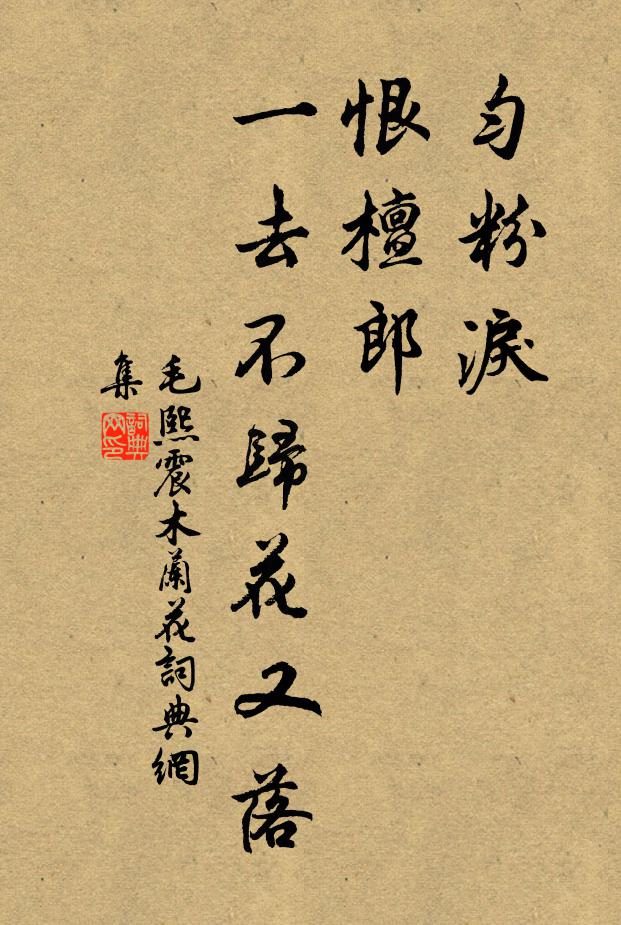 匀粉淚
恨檀郎
一去不歸花又落
毛熙震木蘭花詞典網
集
詞典網印